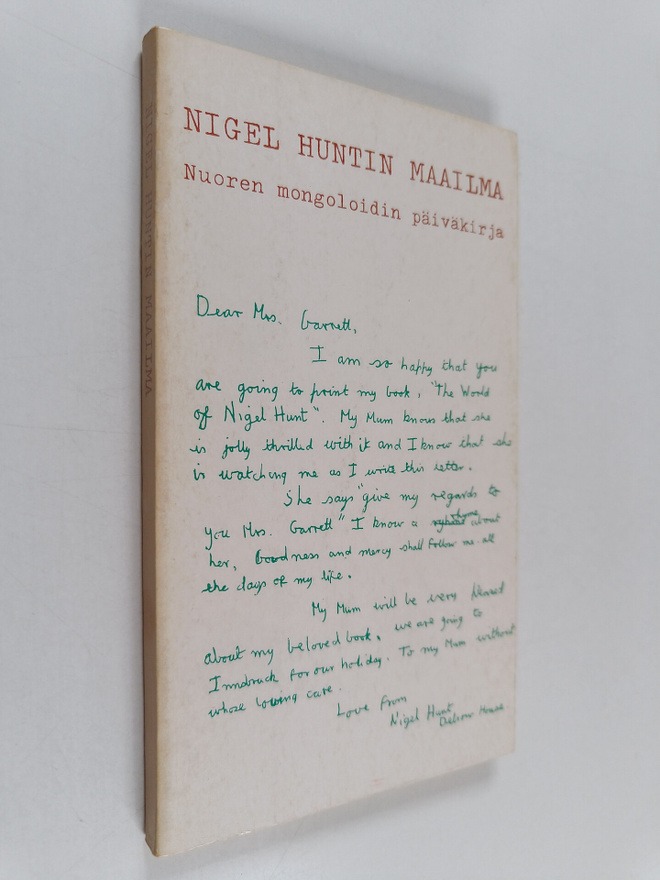 NIGEL HUNTIN MAAILMA
Nuoren mongoloidin päiväkirja
Dear Mrs. Garrett,
I am so happy that you
are going to print my book, "The World
of Nigel Hunt". My Mum knows that she
is jolly thrilled with it and I know that she
is watching me as I write this letter.
She says "give my regards to
you Mrs. Garrett" I know a rhyme about
her, Goodness and mercy shall follow me all
the days of my life.
My Mum will be very pleased
about my beloved book, we are going to
Innsbruck for our holiday. To my Mum without
whose loving care.
Love from
Nigel Hunt
House
NIGEL HUNTIN MAAILMA